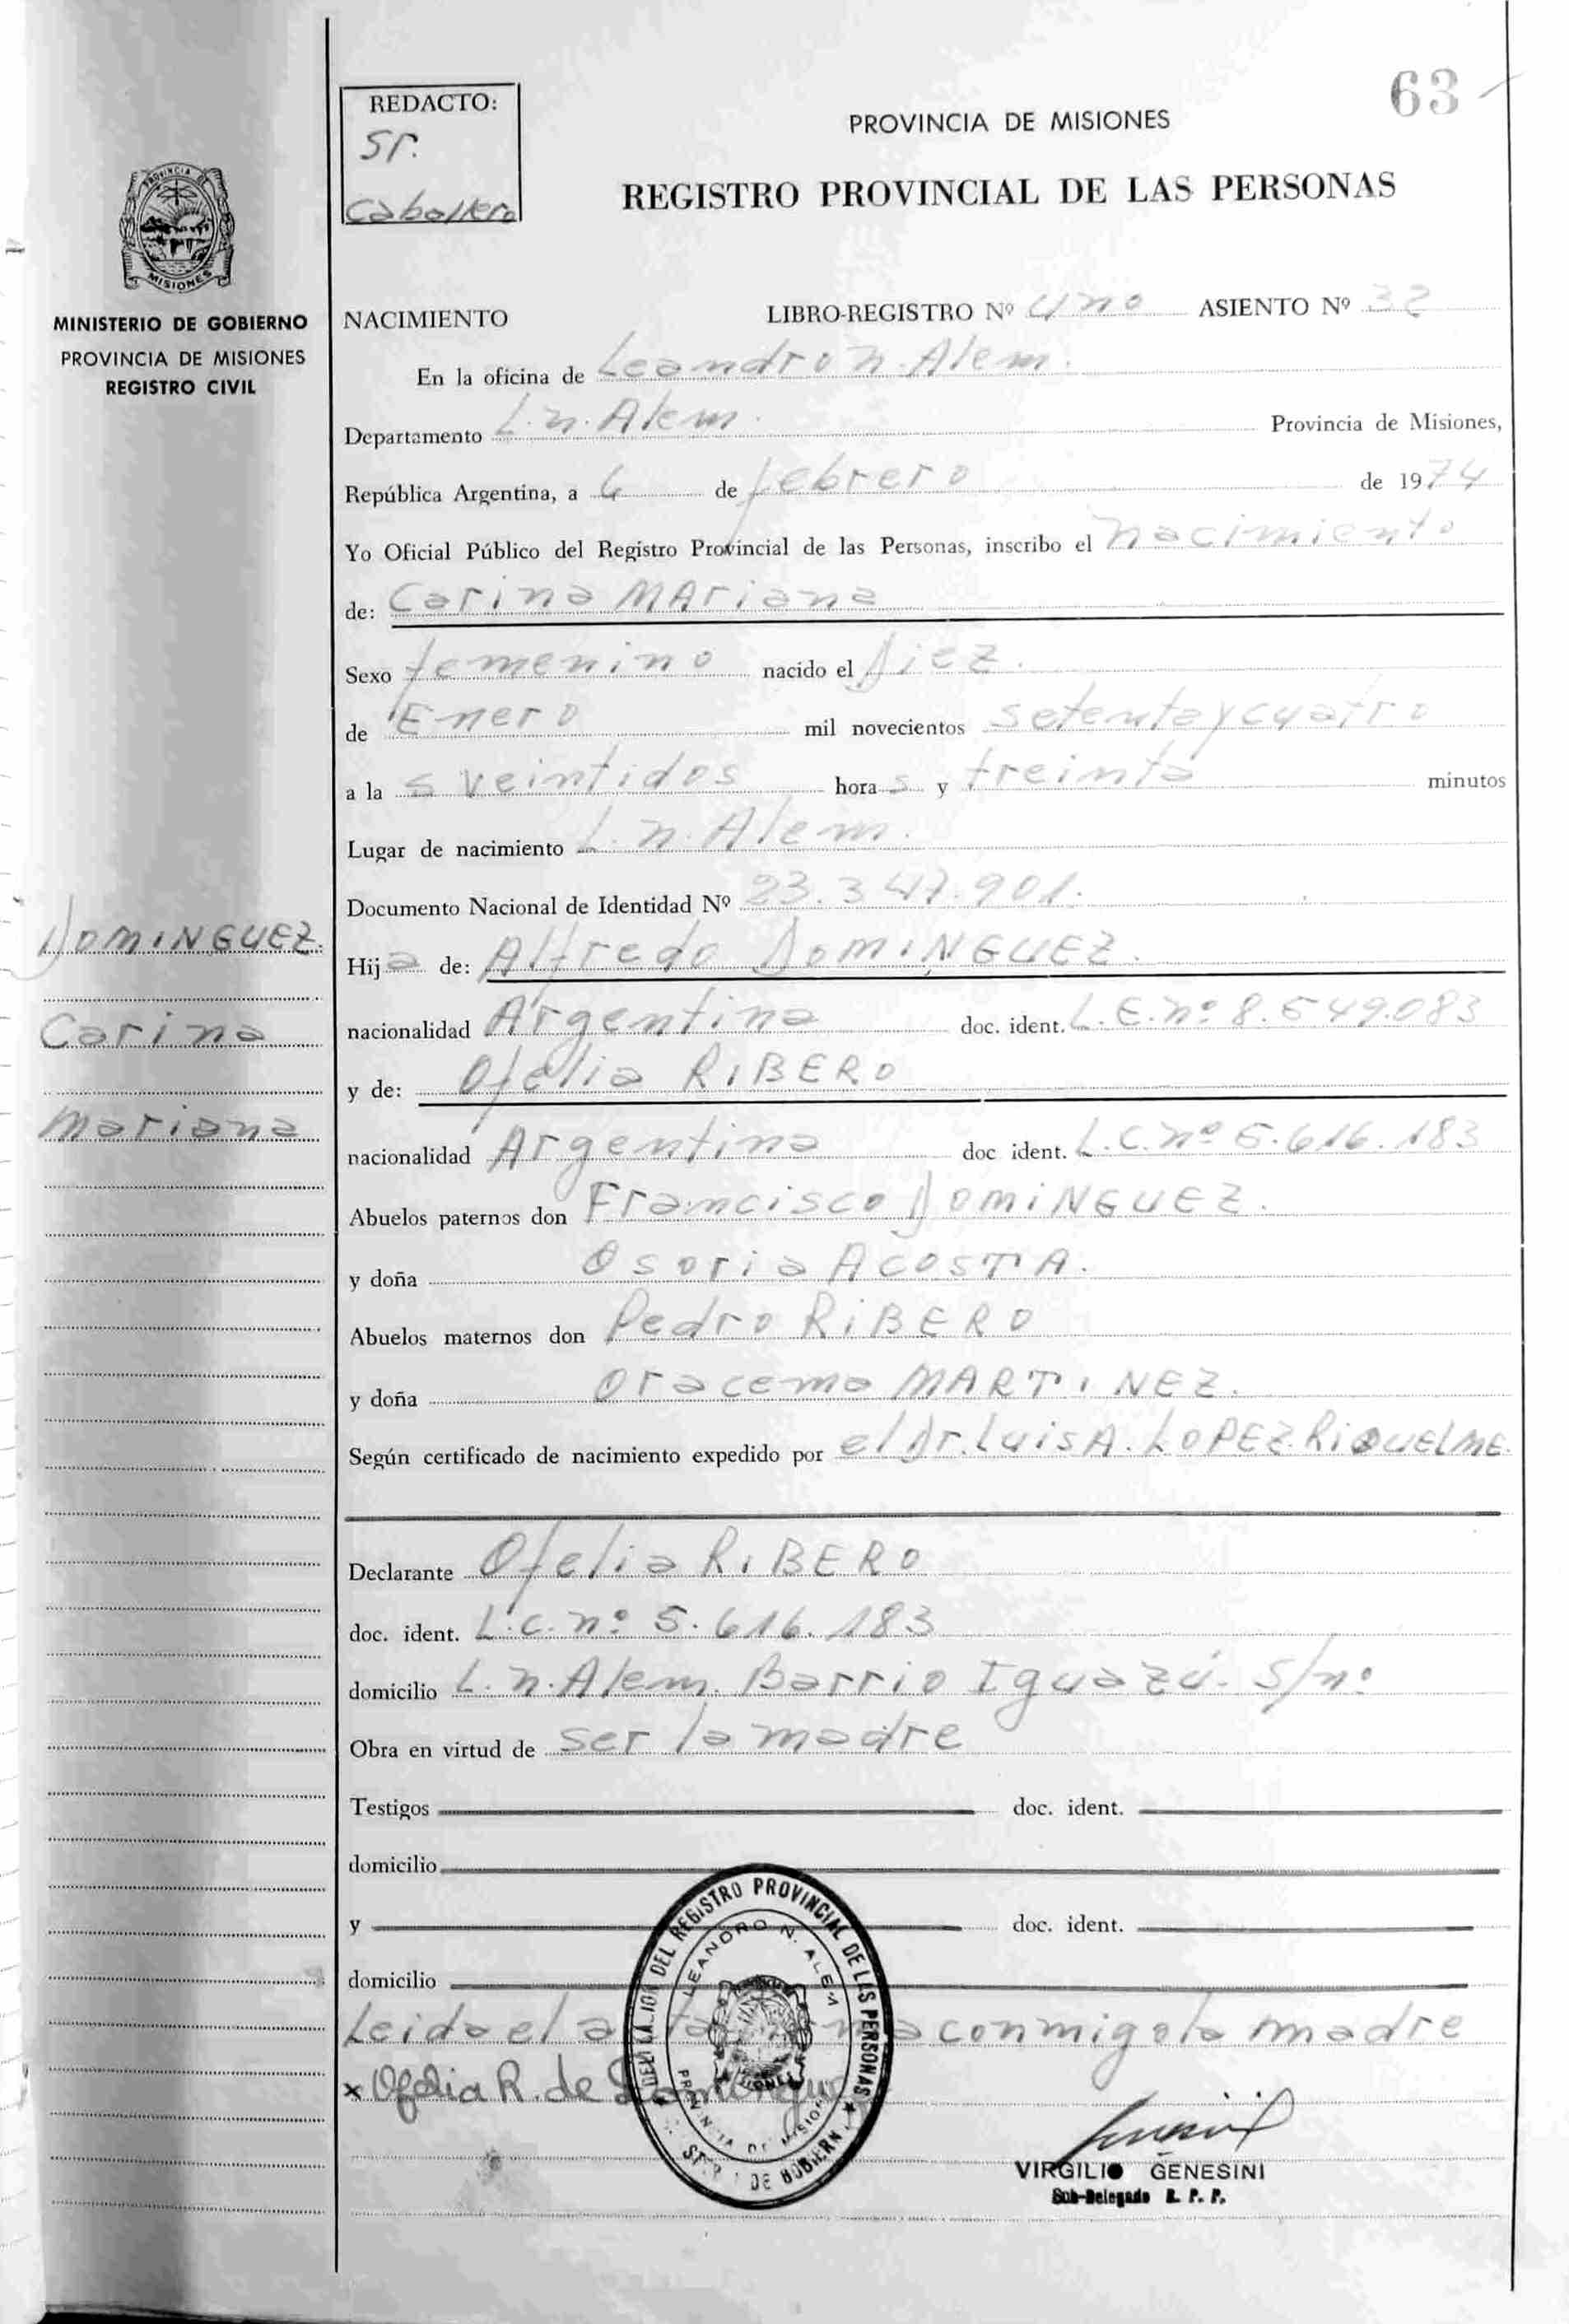 63
REDACTO:
Sr.
Caballero
PROVINCIA DE MISIONES
REGISTRO PROVINCIAL DE LAS PERSONAS
PROVINCIA DE
MISIONES
MINISTERIO DE GOBIERNO
PROVINCIA DE MISIONES
REGISTRO CIVIL
NACIMIENTO LIBRO-REGISTRO Nº uno ASIENTO Nº 32
En la oficina de Leandro n. Alem.
Departamento L. n. Alem. Provincia de Misiones,
República Argentina, a 6 de febrero de 1974
Yo Oficial Público del Registro Provincial de las Personas, inscribo el nacimiento
de: Carina MAriana
Sexo femenino nacido el diez.
de Enero mil novecientos setentaycuatro
a la s veintidos hora s y treinta minutos
Lugar de nacimiento L. n. Alem.
Documento Nacional de Identidad Nº 23.347.901.
DOMINGUEZ.
Carina
Mariana
Hija de: Alfredo DOMINGUEZ.
nacionalidad Argentina doc. ident. L.E.nº 8.549.083
y de: Ofelia RIBERO
nacionalidad Argentina doc ident. L.C.nº 5.616.183
Abuelos paternos don Francisco DOMINGUEZ.
y doña Osoria ACOSTA.
Abuelos maternos don Pedro RIBERO
y doña Oracema MARTINEZ.
Según certificado de nacimiento expedido por el Dr. Luis A. LOPEZ RIQUELME.
Declarante Ofelia RIBERO
doc. ident. L.C. nº 5.616.183
domicilio L. n. Alem. Barrio Iguazú. S/nº
Obra en virtud de ser la madre
Testigos doc. ident.
domicilio
y doc. ident.
domicilio
Leida el acta conmigo la madre
x Ofelia R. de Dominguez
DEL REGISTRO PROVINCIAL DE LAS PERSONAS
LEANDRO N. ALEM
VIRGILIO GENESINI
Sub-Delegado R. P. P.